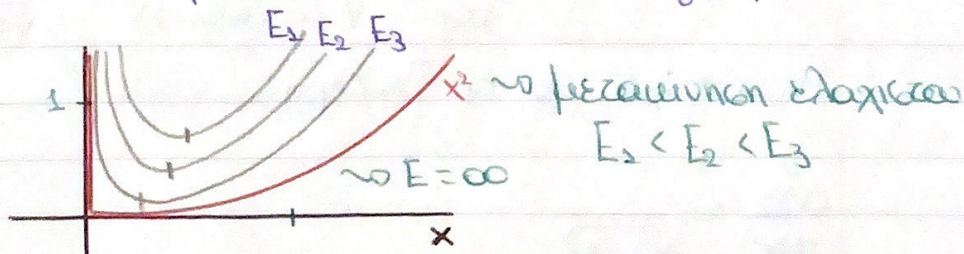 E₁ E₂ E₃
1
x² ~> μετακίνηση ελαχίστου
E₁ < E₂ < E₃
~> E = ∞
x